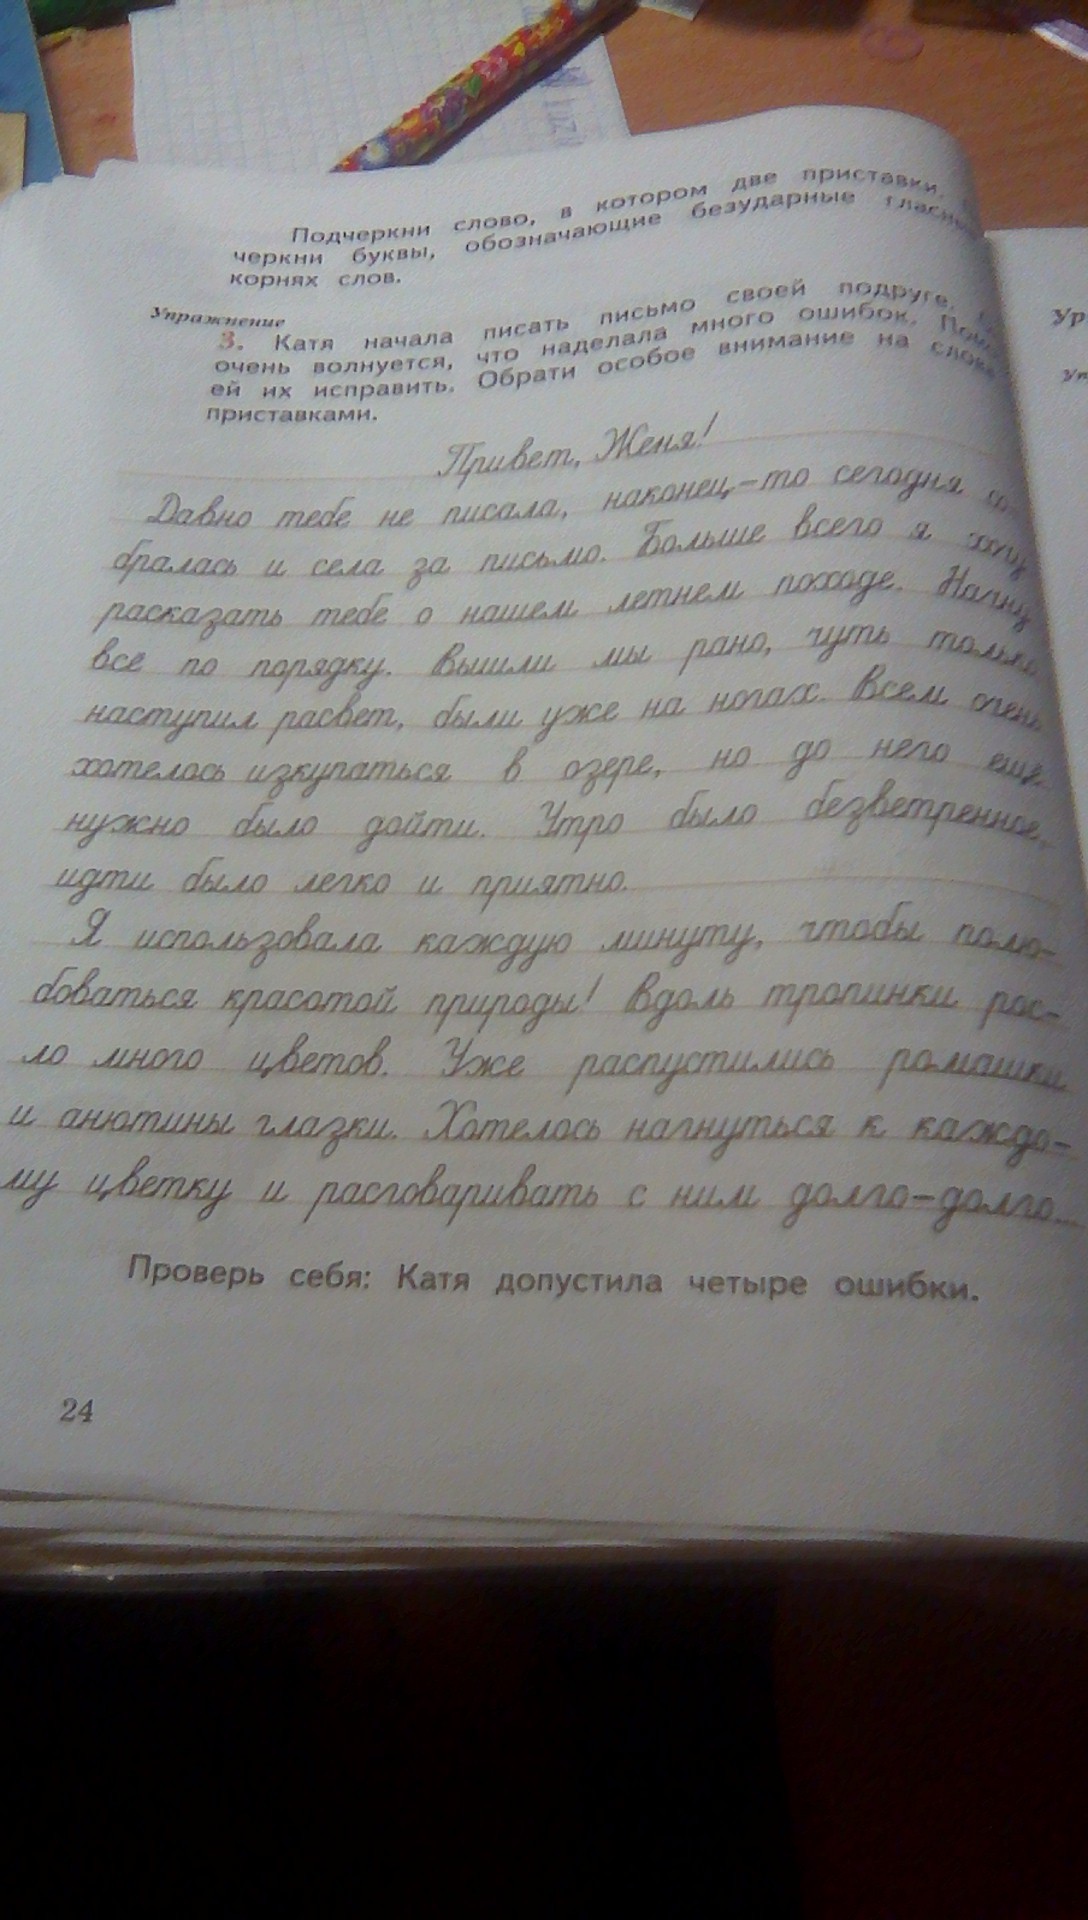 Подчеркни слово, в котором две приставки.
черкни буквы, обозначающие безударные
корнях слов.
Упражнение
3. Катя начала писать письмо своей подруге.
очень волнуется, что наделала много ошибок.
ей их исправить. Обрати особое внимание на
приставками.
Привет, Женя!
Давно тебе не писала, наконец-то сегодня
бралась и села за письмо. Больше всего я хочу
расказать тебе о нашем летнем походе. Начну
всё по порядку. Вышли мы рано, чуть только
наступил расвет, были уже на ногах. Всем очень
хотелось изкупаться в озере, но до него ещё
нужно было дойти. Утро было безветренное,
идти было легко и приятно.
Я использовала каждую минуту, чтобы полю-
боваться красотой природы! Вдоль тропинки рос-
ло много цветов. Уже распустились ромашки
и анютины глазки. Хотелось нагнуться к каждо-
му цветку и расговаривать с ним долго-долго...
Проверь себя: Катя допустила четыре ошибки.
24
Ур
Уп